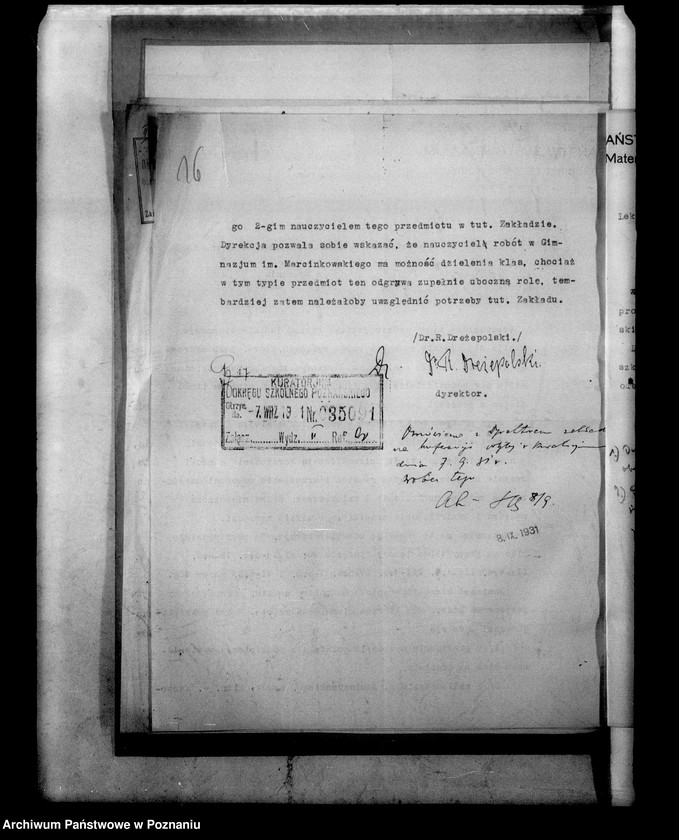 16
go 2-gim nauczycielem tego przedmiotu w tut. Zakładzie.
Dyrekcja pozwala sobie wskazać, że nauczycielą robót w Gim-
nazjum im. Marcinkowskiego ma możność dzielenia klas, chociaż
w tym typie przedmiot ten odgrywa zupełnie uboczną rolę, tem-
bardziej zatem należałoby uwzględnić potrzeby tut. Zakładu.
/Dr.R.Dreżepolski./
Dr R. Dreżepolski.
dyrektor.
KURATORJUM
OKRĘGU SZKOLNEGO POZNAŃSKIEGO
Otrzym.
dn. -7. WRZ 19 1 Nr. 035091
Załącz. Wydz. II Ref.
Omówiono z Dyrektorem
dnia 7. 9. 31 r.
wobec tego
8/9.
8. IX. 1931
AŃST
Mater
Lek
pro
ski
szk
Archiwum Państwowe w Poznaniu